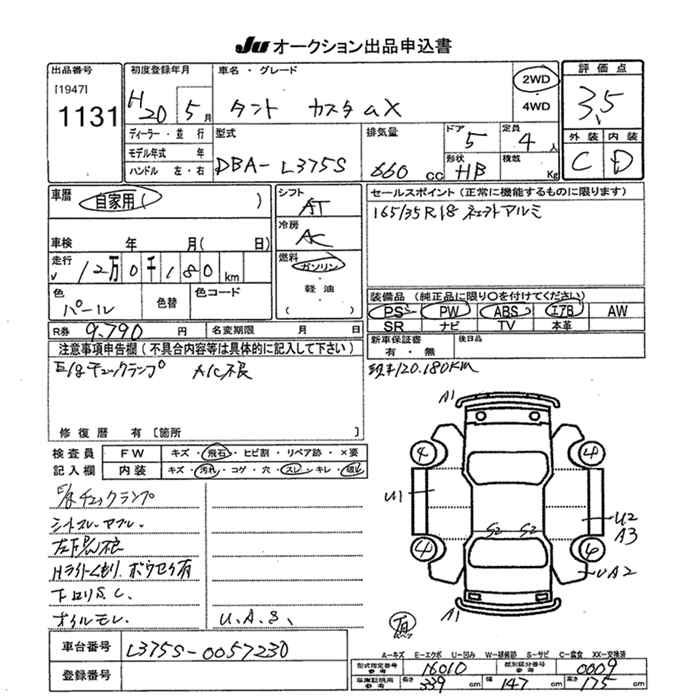 JU オークション出品申込書
出品番号
[1947]
1131
初度登録年月
H20 5月
車名・グレード
タント カスタムX
2WD
4WD
評価点
3,5
外装 内装
C D
ディーラー・並行
モデル年式 年
ハンドル 左・右
型式
DBA-L375S
排気量
660 cc
ドア
5
形状
HB
定員
4 人
積載
Kg
車歴
自家用( )
車検 年 月( 日)
走行
12万0千180 km
色
パール
色替
色コード
シフト
AT
冷房
AC
燃料
ガソリン
軽油
( )
セールスポイント(正常に機能するものに限ります)
165/35R18 社外アルミ
装備品(純正品に限り○を付けてください)
PS PW ABS エアB AW
SR ナビ TV 本革
R券 9,790 円
名変期限 月 日
新車保証書
有・無
後日品
注意事項申告欄(不具合内容等は具体的に記入して下さい)
E/gチェックランプ A/C不良
120.180KM
修復歴 有 [箇所 ]
検査員
記入欄
FW キズ・飛石・ヒビ割・リペア跡・×要
内装 キズ・汚れ・コゲ・穴・スレ・キレ・
E/gチェックランプ
シートスレ
Hライトくもり.
下回りS.C.
オイルモレ. U.A.S.
A1
4 4
U1
U2
A3
S2 S2
4 4
UA2
A1
A-キズ E-エクボ U-凹み W-補修跡 S-サビ C-腐食 XX-交換済
車台番号
L375S-0057230
登録番号
型式指定番号
参考
16010
類別区分番号
参考
0009
車庫証明用
参考
長さ 339 cm 幅 147 cm 高さ 175 cm